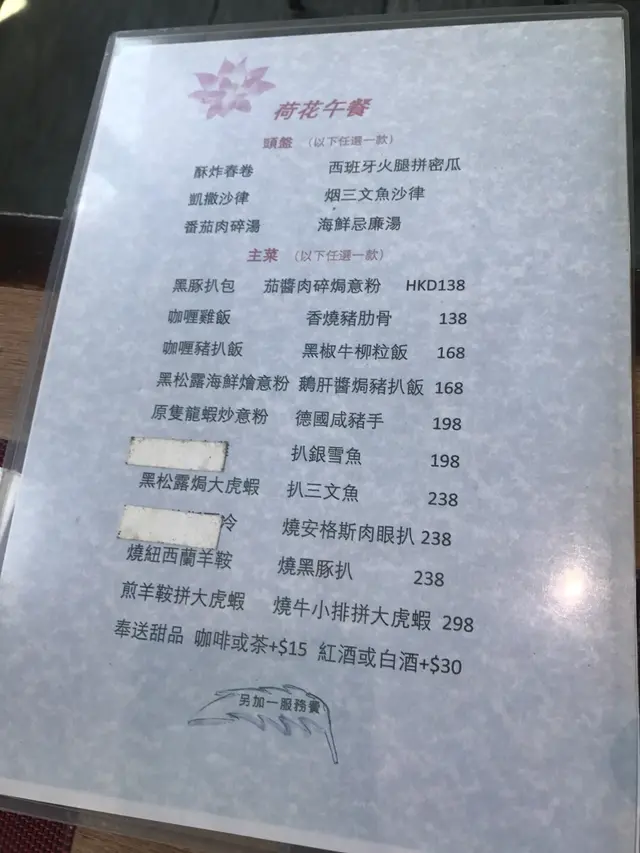 荷花午餐
頭盤 (以下任選一款)
酥炸春卷 西班牙火腿拼密瓜
凱撒沙律 烟三文魚沙律
番茄肉碎湯 海鮮忌廉湯
主菜 (以下任選一款)
黑豚扒包 茄醬肉碎焗意粉 HKD138
咖喱雞飯 香燒豬肋骨 138
咖喱豬扒飯 黑椒牛柳粒飯 168
黑松露海鮮燴意粉 鵝肝醬焗豬扒飯 168
原隻龍蝦炒意粉 德國咸豬手 198
扒銀雪魚 198
黑松露焗大虎蝦 扒三文魚 238
冷 燒安格斯肉眼扒 238
燒紐西蘭羊鞍 燒黑豚扒 238
煎羊鞍拼大虎蝦 燒牛小排拼大虎蝦 298
奉送甜品 咖啡或茶+$15 紅酒或白酒+$30
另加一服務費